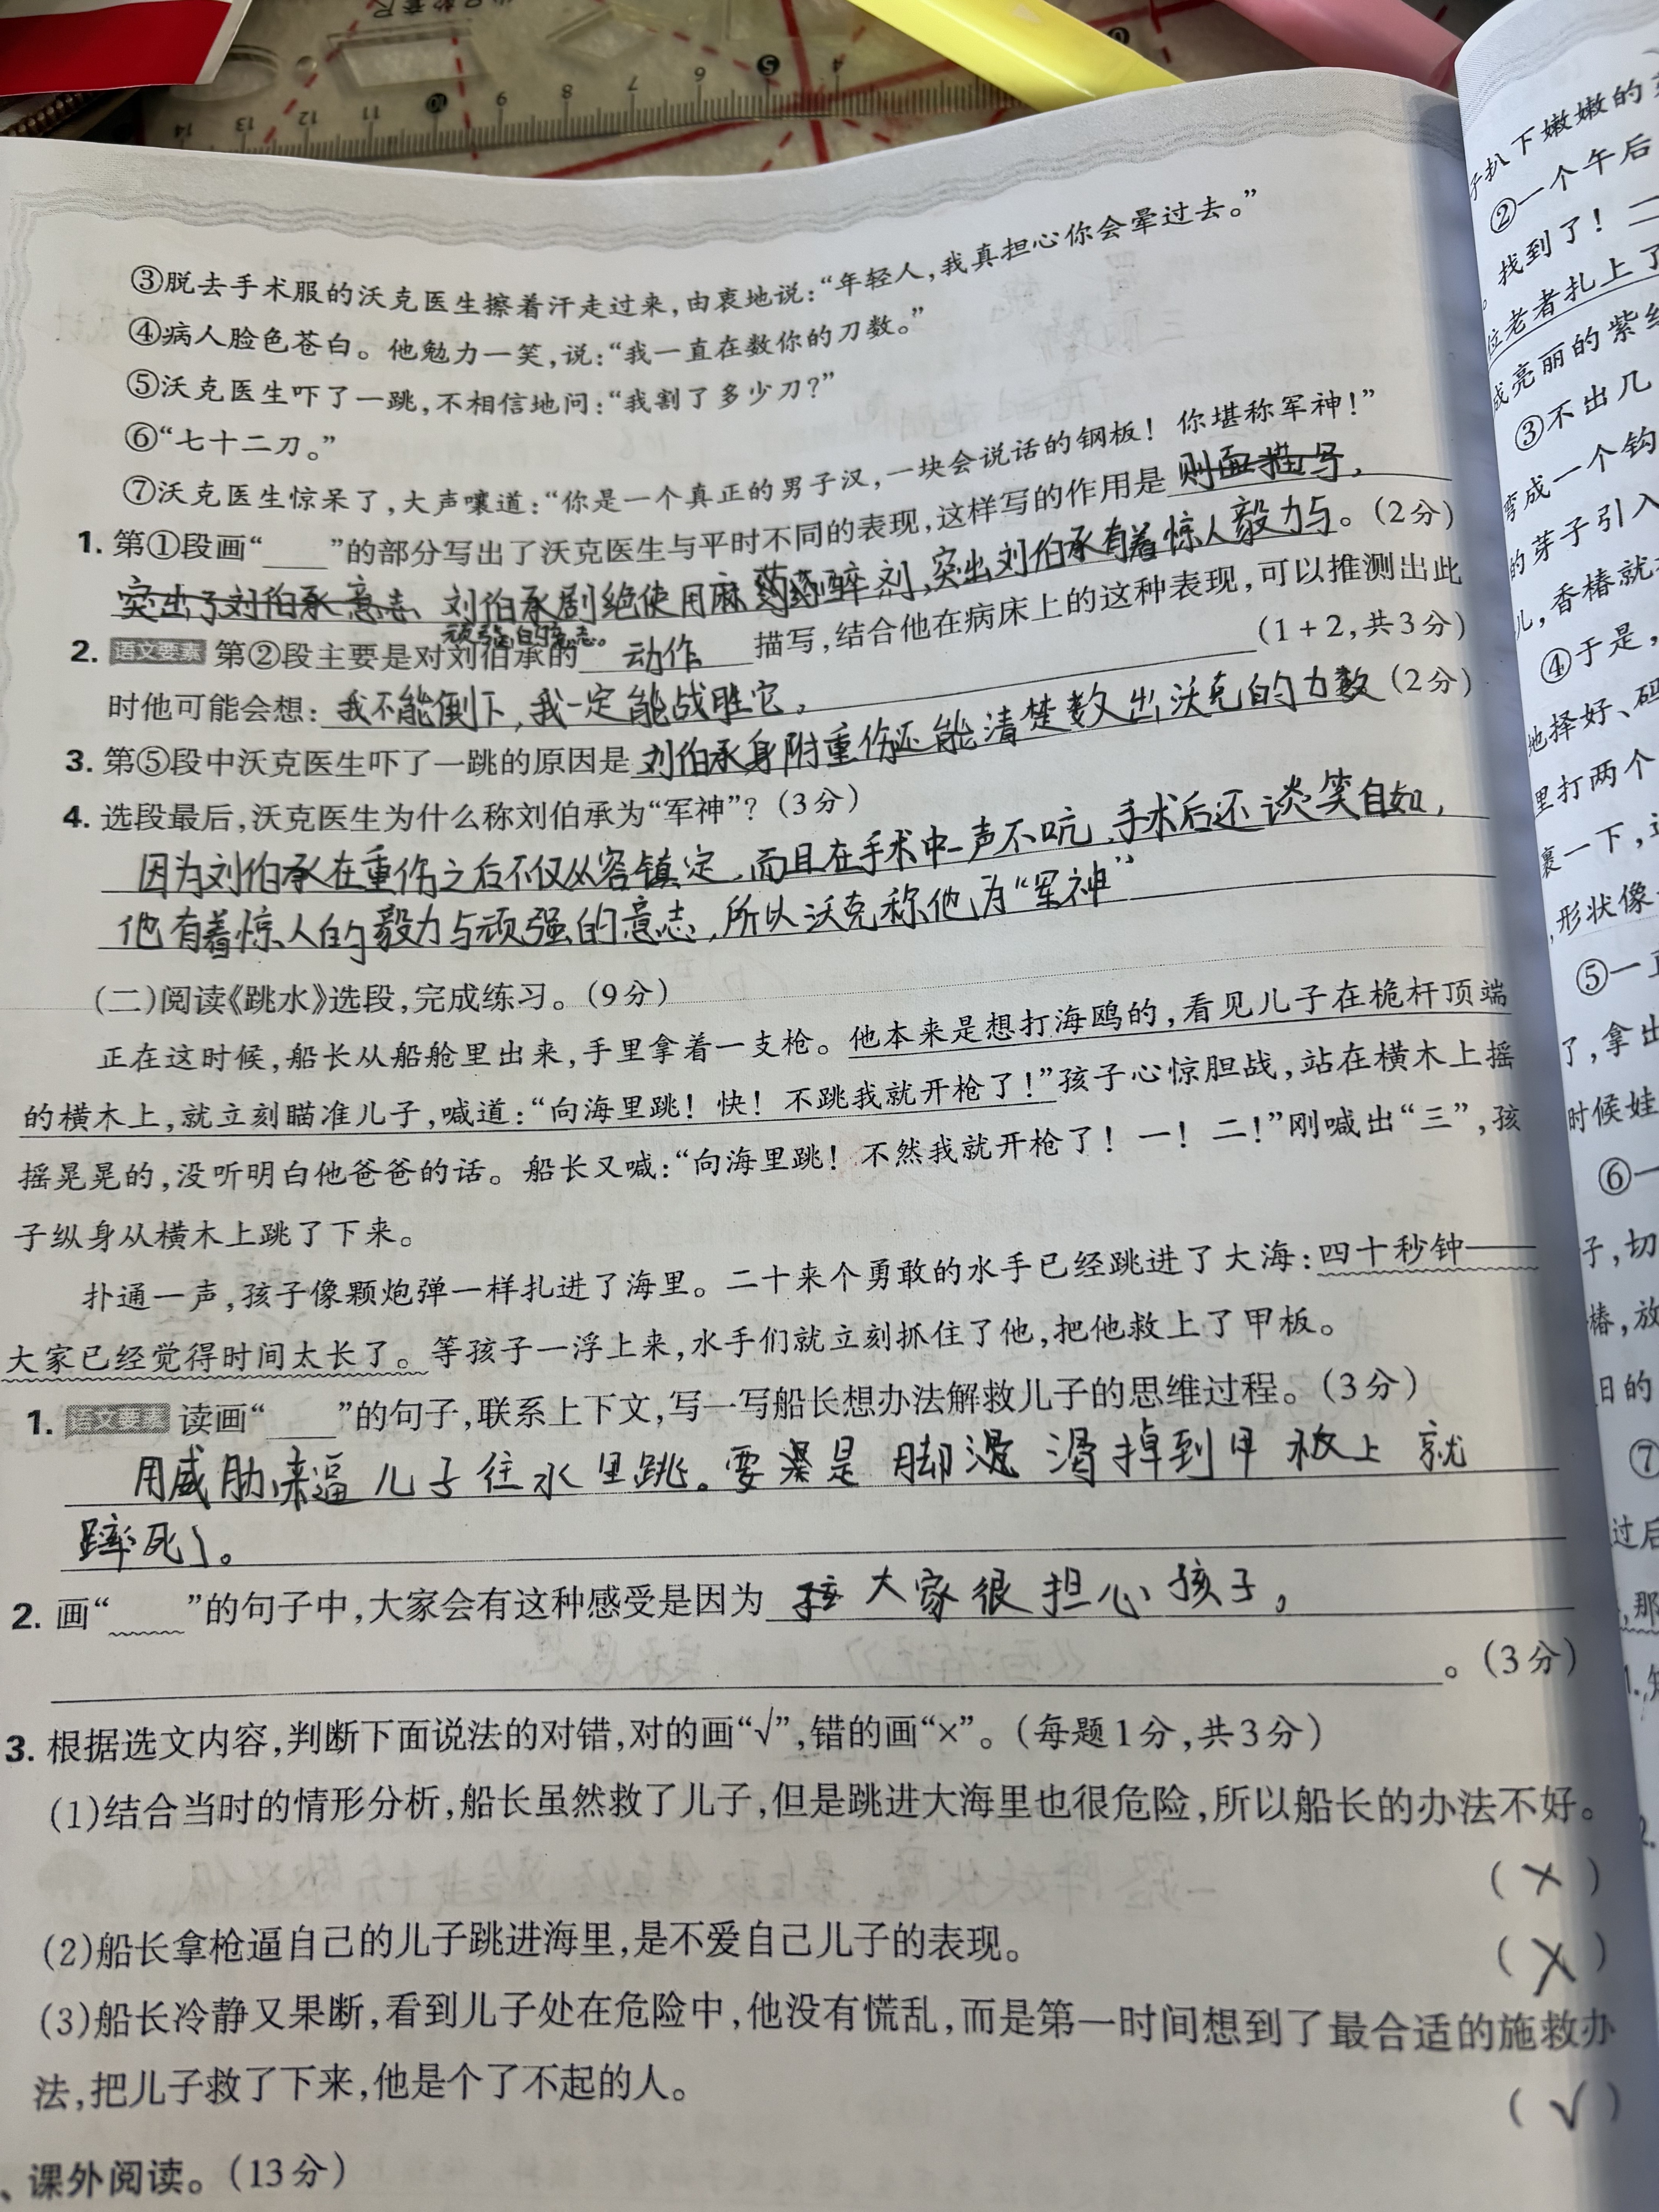 ③脱去手术服的沃克医生擦着汗走过来,由衷地说:“年轻人,我真担心你会晕过去。”
④病人脸色苍白。他勉力一笑,说:“我一直在数你的刀数。”
⑤沃克医生吓了一跳,不相信地问:“我割了多少刀?”
⑥“七十二刀。”
⑦沃克医生惊呆了,大声嚷道:“你是一个真正的男子汉,一块会说话的钢板！你堪称军神！”
1. 第①段画“____”的部分写出了沃克医生与平时不同的表现,这样写的作用是 则面描写,
突出了刘伯承意志、刘伯承剧绝使用麻 醉剂,突出刘伯承有着惊人毅力与。(2分)
顽强的意志。
2. 语文要素 第②段主要是对刘伯承的 动作 描写,结合他在病床上的这种表现,可以推测出此
时他可能会想: 我不能倒下,我一定能战胜它。 (1+2,共3分)
3. 第⑤段中沃克医生吓了一跳的原因是 刘伯承身附重伤还能清楚数出沃克的力数 (2分)
4. 选段最后,沃克医生为什么称刘伯承为“军神”? (3分)
因为刘伯承在重伤之后不仅从容镇定,而且在手术中一声不吭,手术后还谈笑自如,
他有着惊人的毅力与顽强的意志,所以沃克称他为“军神”
(二)阅读《跳水》选段,完成练习。(9分)
正在这时候,船长从船舱里出来,手里拿着一支枪。他本来是想打海鸥的,看见儿子在桅杆顶端
的横木上,就立刻瞄准儿子,喊道:“向海里跳！快！不跳我就开枪了！”孩子心惊胆战,站在横木上摇
摇晃晃的,没听明白他爸爸的话。船长又喊:“向海里跳！不然我就开枪了！一！二！”刚喊出“三”,孩
子纵身从横木上跳了下来。
扑通一声,孩子像颗炮弹一样扎进了海里。二十来个勇敢的水手已经跳进了大海:四十秒钟——
大家已经觉得时间太长了。等孩子一浮上来,水手们就立刻抓住了他,把他救上了甲板。
1. 语文要素 读画“____”的句子,联系上下文,写一写船长想办法解救儿子的思维过程。(3分)
用威胁来逼儿子往水里跳。要 是脚 滑掉到甲板上就
蹿死了。
2. 画“____”的句子中,大家会有这种感受是因为 大家很担心孩子。
。(3分)
3. 根据选文内容,判断下面说法的对错,对的画“√”,错的画“×”。(每题1分,共3分)
(1)结合当时的情形分析,船长虽然救了儿子,但是跳进大海里也很危险,所以船长的办法不好。
(×)
(2)船长拿枪逼自己的儿子跳进海里,是不爱自己儿子的表现。 (×)
(3)船长冷静又果断,看到儿子处在危险中,他没有慌乱,而是第一时间想到了最合适的施救办
法,把儿子救了下来,他是个了不起的人。 (√)
、课外阅读。(13分)
子扒下嫩嫩的
②一个午后
找到了！二
位老者扎上了
成亮丽的紫
③不出几
弯成一个钩
的芽子引入
儿,香椿就
④于是,
地择好、码
里打两个
裹一下,
,形状像
⑤一
了,拿出
时候娃
⑥一
子,切
椿,放
日的
⑦
过后
,那
14 13 12 11 10 9 8 7 6 5 4